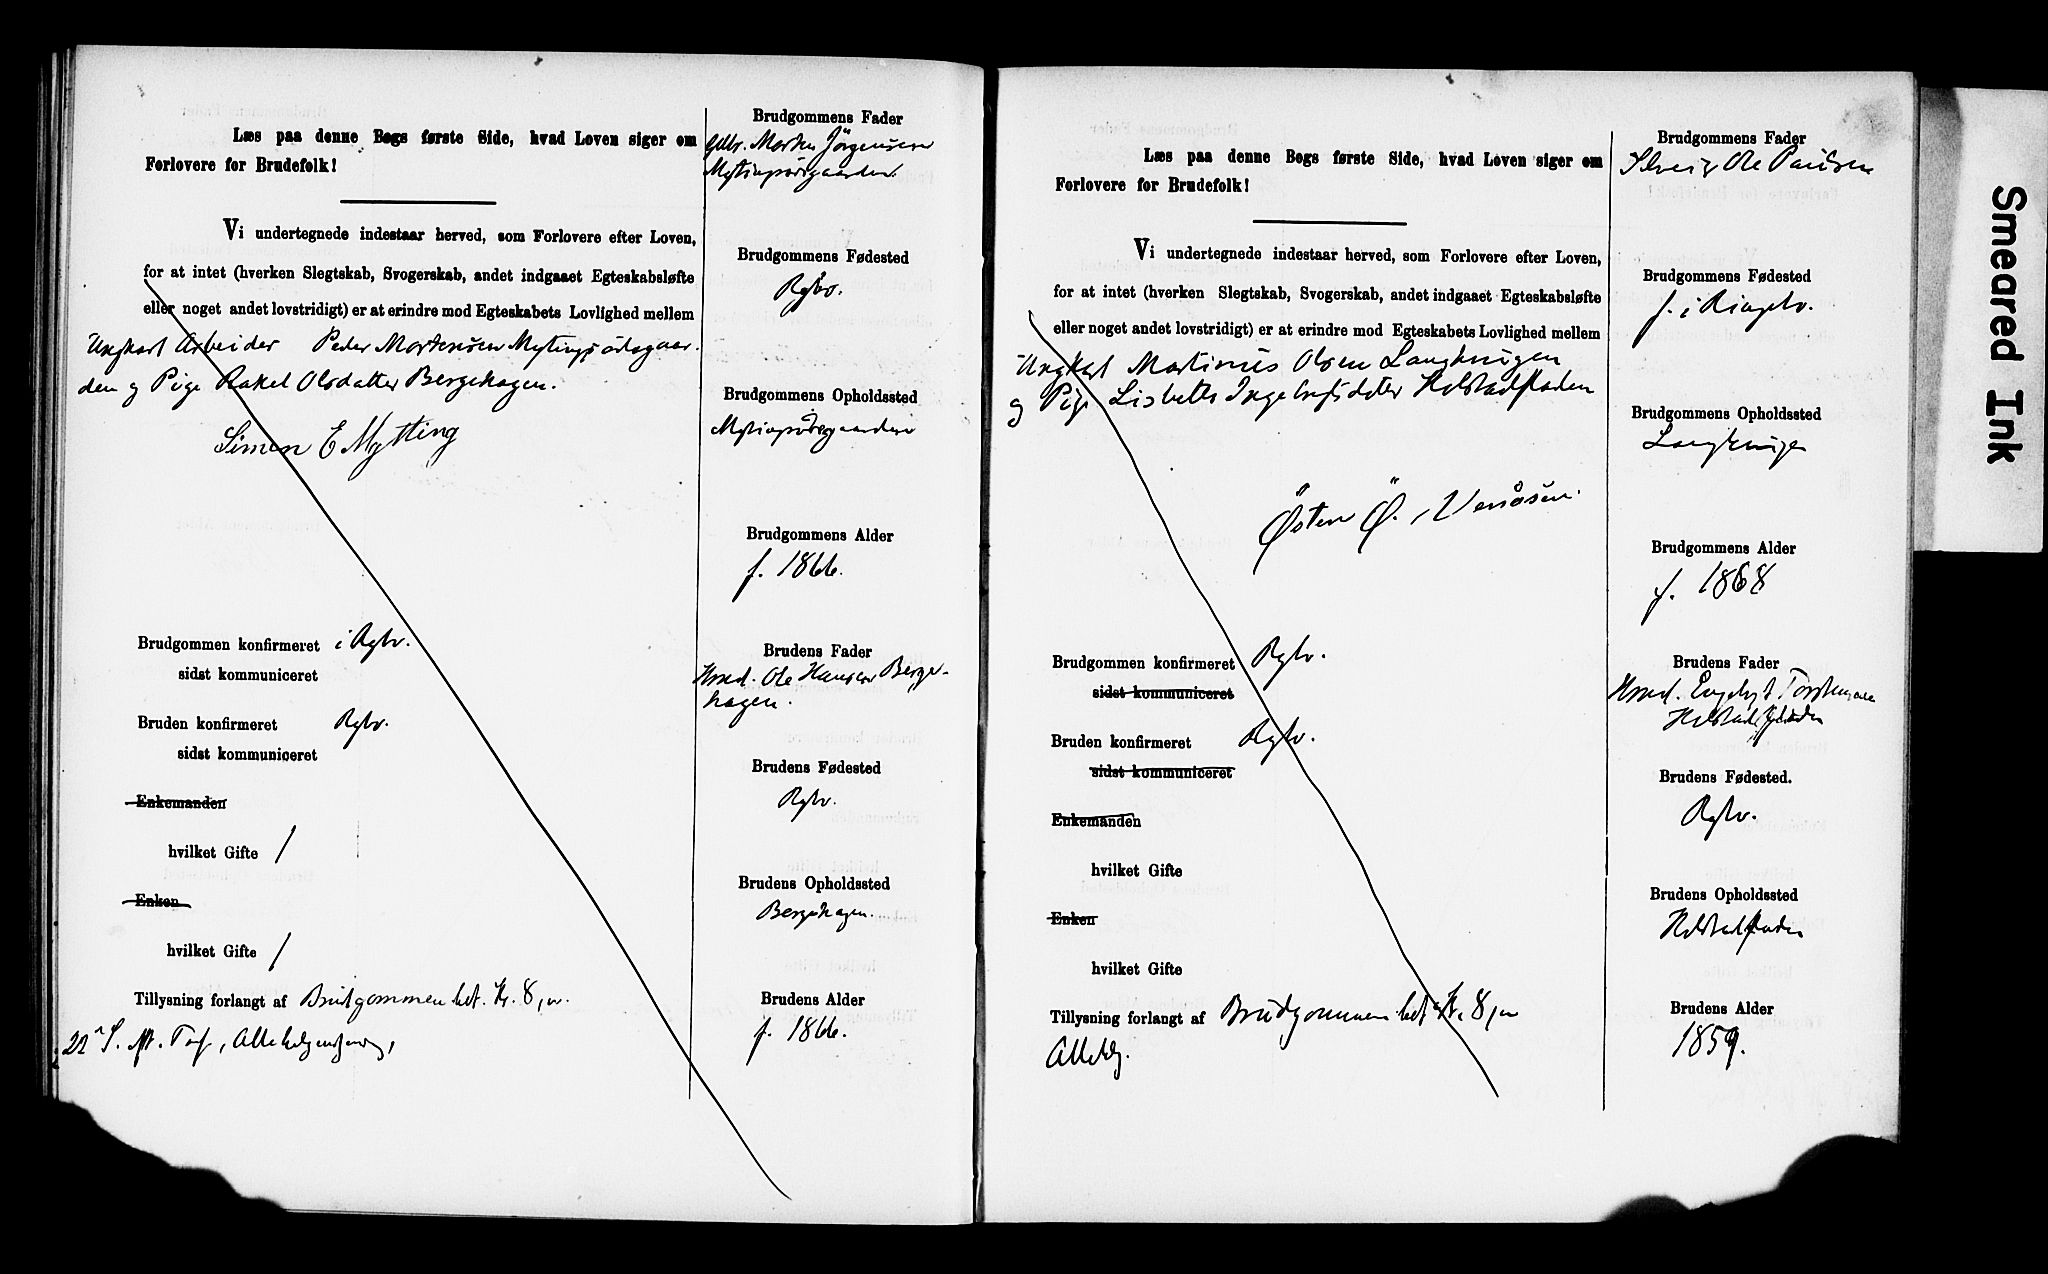 Læs paa denne Bogs første Side, hvad Loven siger om
Forlovere for Brudefolk!
Vi undertegnede indestaar herved, som Forlovere efter Loven,
for at intet (hverken Slegtskab, Svogerskab, andet indgaaet Egteskabsløfte
eller noget andet lovstridigt) er at erindre mod Egteskabets Lovlighed mellem
Ungkarl Arbeider Peder Mortensen Mytingsødegaar-
den og Pige Rakel Olsdatter Bergehagen.
Simen E Mytting
Brudgommen konfirmeret i Rgbv.
sidst kommuniceret
Bruden konfirmeret Rgbv.
sidst kommuniceret
Enkemanden
hvilket Gifte /
Enken
hvilket Gifte /
Tillysning forlangt af Brudgommen bet. Kr. 8,
22 S. Tref, Allehelgensdag,
Brudgommens Fader
Gdbr. Morten Jörgensen
Brudgommens Fødested
Rgbv.
Brudgommens Opholdssted
Brudgommens Alder
f. 1866.
Brudens Fader
Hmd. Ole Hansen Berge-
hagen.
Brudens Fødested
Rgbv.
Brudens Opholdssted
Bergehagen.
Brudens Alder
f. 1866.
Læs paa denne Bogs første Side, hvad Loven siger om
Forlovere for Brudefolk!
Vi undertegnede indestaar herved, som Forlovere efter Loven,
for at intet (hverken Slegtskab, Svogerskab, andet indgaaet Egteskabsløfte
eller noget andet lovstridigt) er at erindre mod Egteskabets Lovlighed mellem
Ungkarl Martinus Olsen Langkrugen
og Pige Lisbeth Ingebrigtsdatter
Østen Ø.
Brudgommen konfirmeret Rgbv.
sidst kommuniceret
Bruden konfirmeret Rgbv.
sidst kommuniceret
Enkemanden
hvilket Gifte
Enken
hvilket Gifte
Tillysning forlangt af Brudgommen bet Kr. 8,
Allehlg.
Brudgommens Fader
Ole Paulsen
Brudgommens Fødested
f. i Ringebv.
Brudgommens Opholdssted
Langkrugen
Brudgommens Alder
f. 1868
Brudens Fader
Hmd.
Brudens Fødested.
Rgbv.
Brudens Opholdssted
Brudens Alder
1859.
Smeared Ink